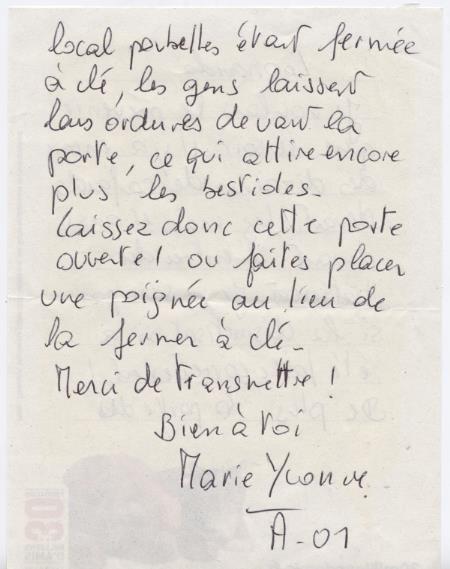 local poubelles étant fermée
à clé, les gens laissent
leurs ordures devant la
porte, ce qui attire encore
plus les bestides.
Laissez donc cette porte
ouverte! ou faites placer
une poignée au lieu de
la fermer à clé.
Merci de transmettre!
Bien à toi
Marie Yvonne
A-01
30